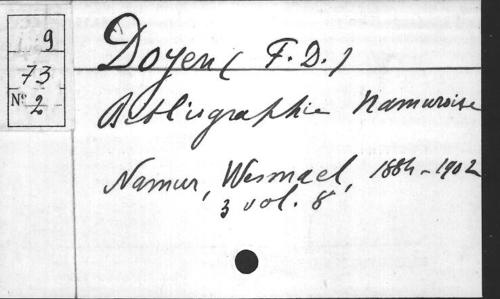 9
73
No 2
Doyen (F. D.)
Bibliographie Namuroise
Namur, Wesmael, 1884-1902
3 vol. 8°